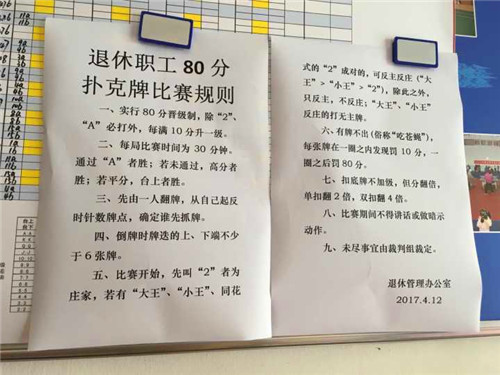 退休职工80分
扑克牌比赛规则
一、实行80分晋级制，除“2”、
“A”必打外，每满10分升一级。
二、每局比赛时间为30分钟。
通过“A”者胜；若未通过，高分者
胜；若平分，台上者胜。
三、先由一人翻牌，从自己起反
时针数牌点，确定谁先抓牌。
四、倒牌时牌迭的上、下端不少
于6张牌。
五、比赛开始，先叫“2”者为
庄家，若有“大王”、“小王”、同花
式的“2”成对的，可反主反庄（“大
王”＞“小王”＞“2”），除此之外，
只反主，不反庄；“大王”、“小王”
反庄的打无主牌。
六、有牌不出（俗称“吃苍蝇”），
每张牌在一圈之内发现罚10分，一
圈之后罚80分。
七、扣底牌不加级，但分翻倍，
单扣翻2倍，双扣翻4倍。
八、比赛期间不得讲话或做暗示
动作。
九、未尽事宜由裁判组裁定。
退休管理办公室
2017.4.12